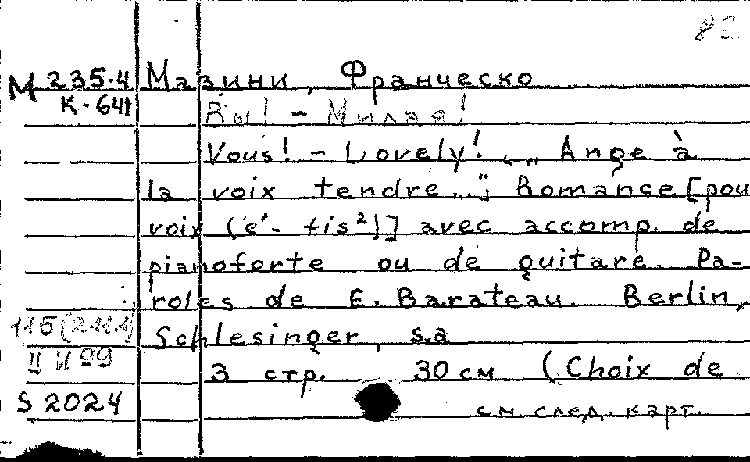 М 235·4 Мазини, Франческо
К-641 Вы! - Милая!
Vous! - Lovely! „Ange à
la voix tendre..."; Romance [pou
voix (e'- fis²)] avec accomp. de
pianoforte ou de guitare. Pa-
roles de E. Barateau. Berlin,
Schlesinger, s.a
3 стр. 30 см (Choix de
S 2024 см. след. карт.